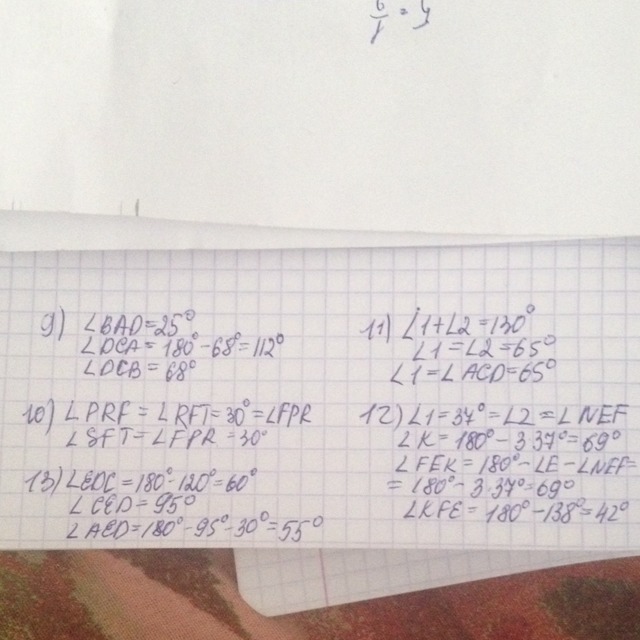 9) ∠BAD=25°
∠DCA=180°-68°=112°
∠DCB=68°
10) ∠PRF=∠RFT=30°=∠FPR
∠SFT=∠FPR=30°
13) ∠EDC=180°-120°=60°
∠CED=95°
∠AED=180°-95°-30°=55°
11) ∠1+∠2=130°
∠1=∠2=65°
∠1=∠ACD=65°
12) ∠1=37°=∠2=∠NEF
∠K=180°-3·37°=69°
∠FEK=180°-∠E-∠NEF=
=180°-3·37°=69°
∠KFE=180°-138°=42°